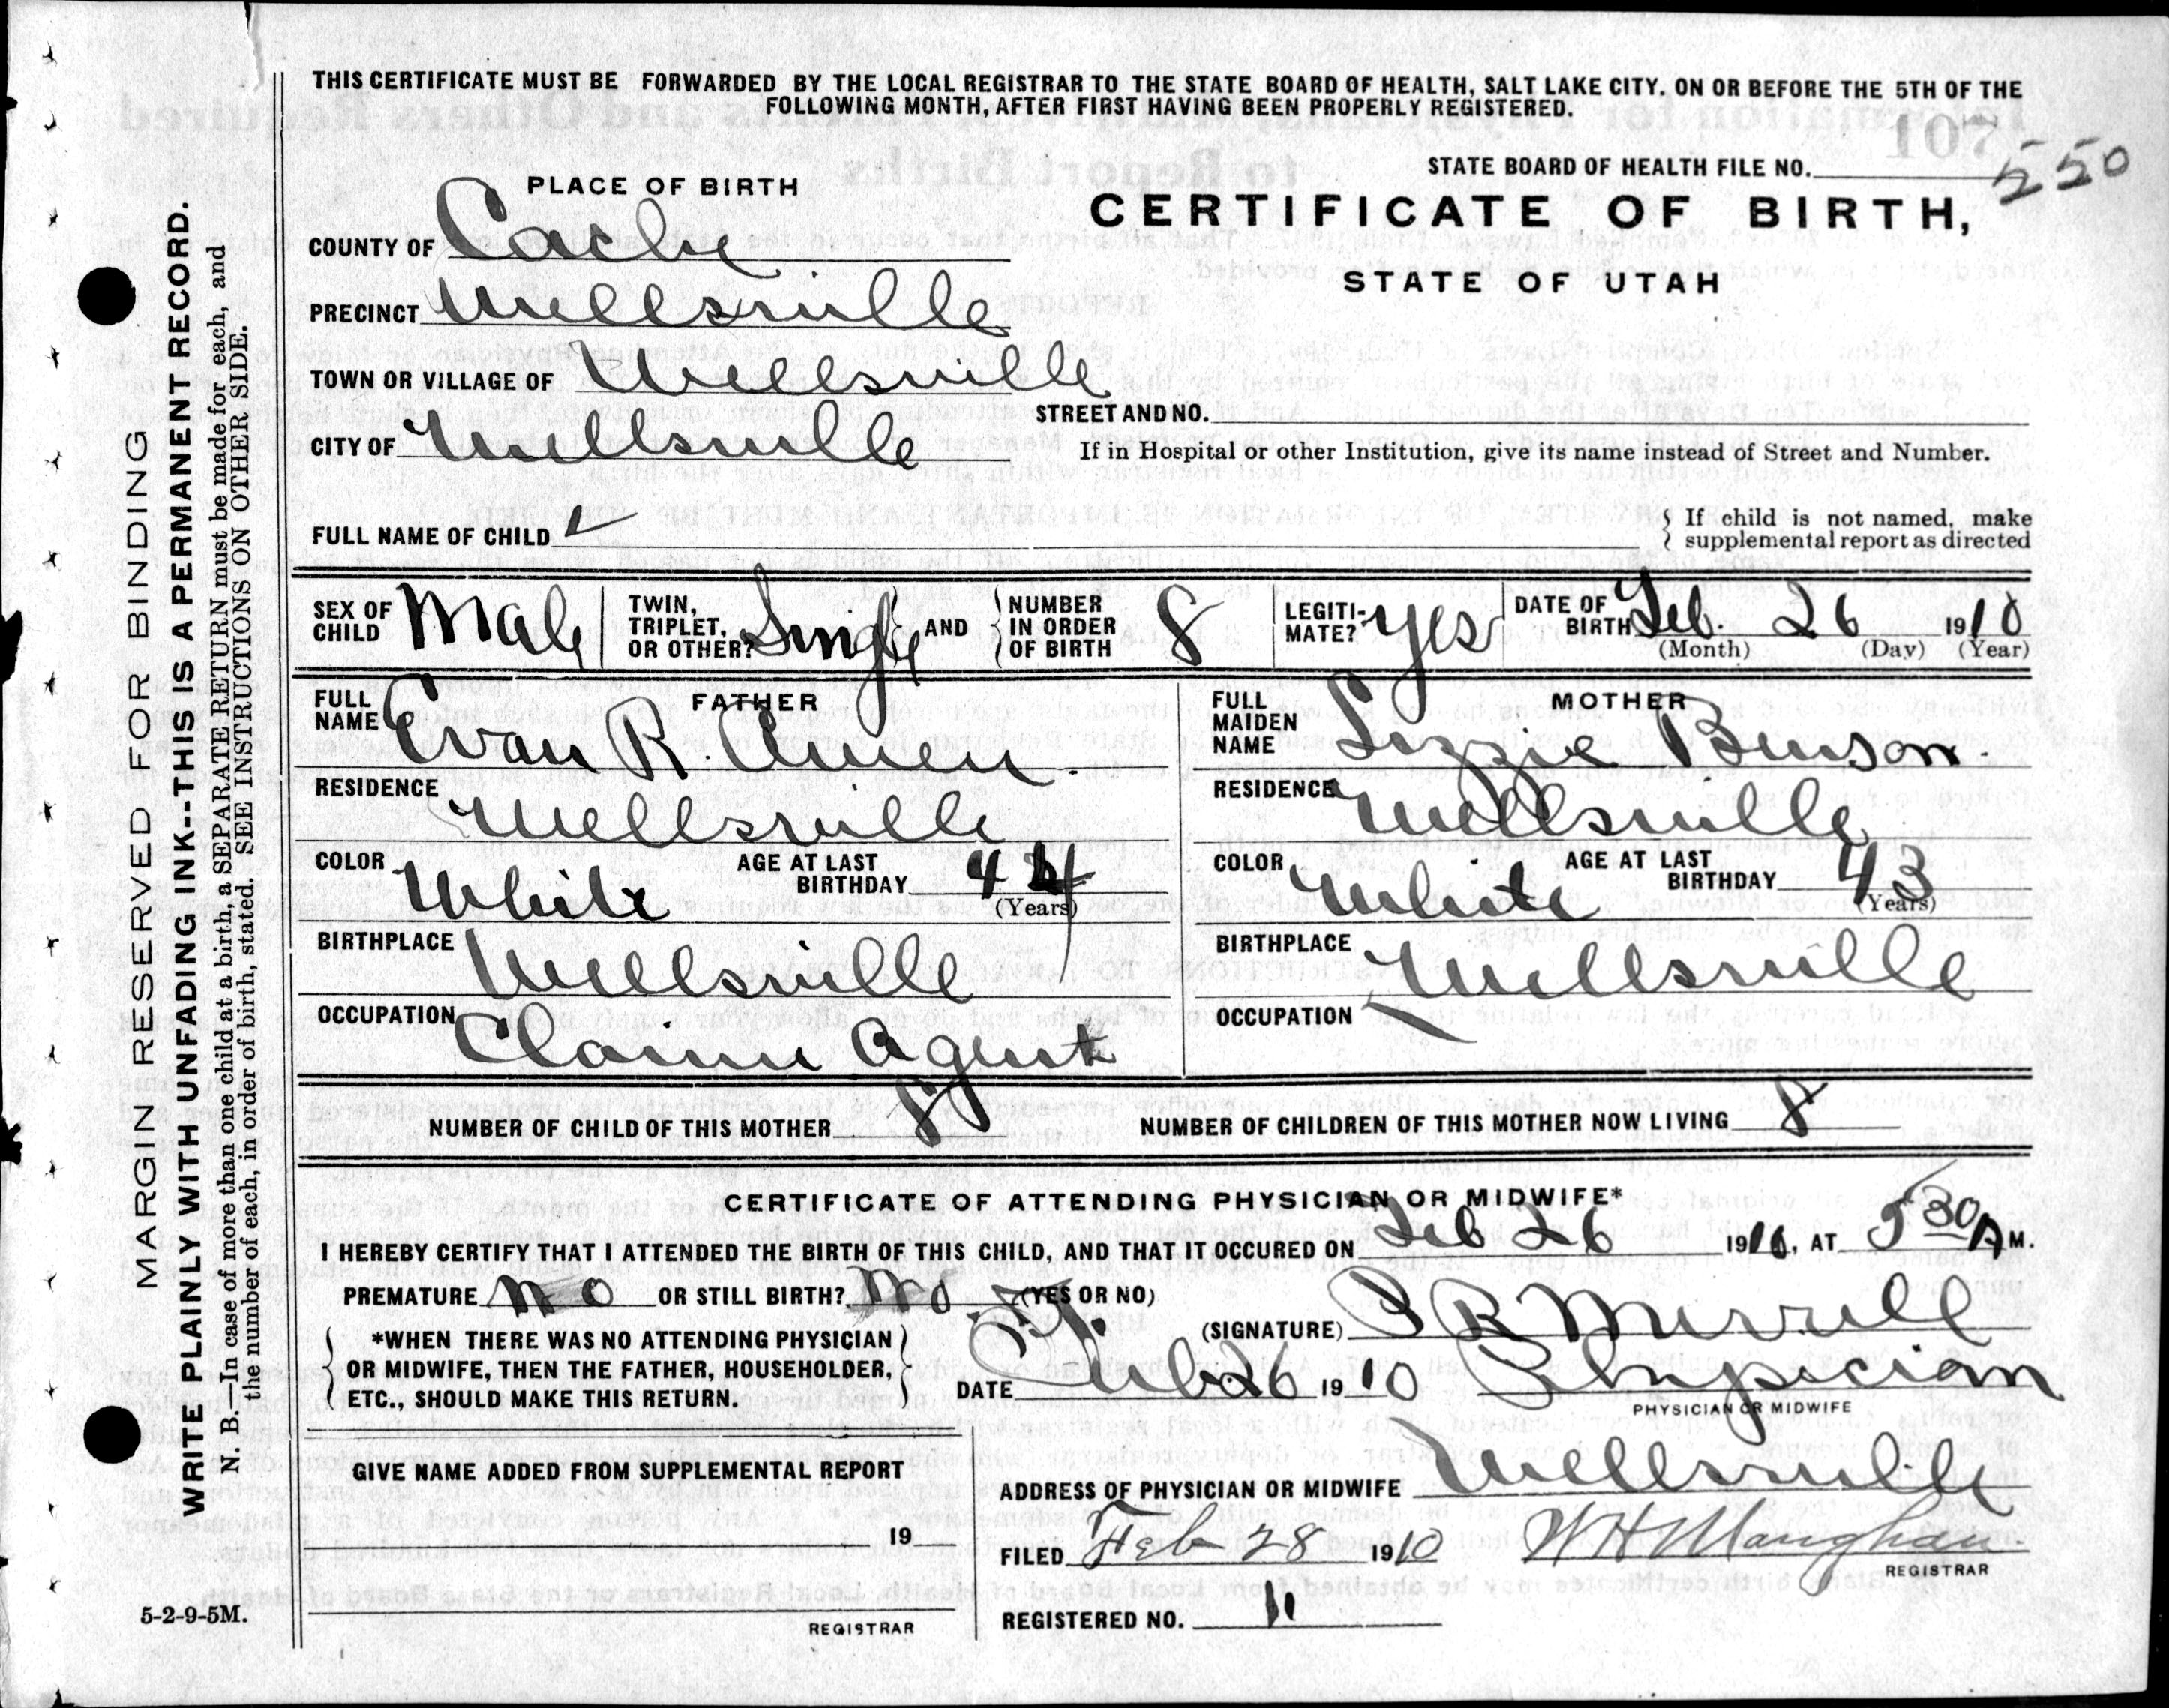 THIS CERTIFICATE MUST BE FORWARDED BY THE LOCAL REGISTRAR TO THE STATE BOARD OF HEALTH, SALT LAKE CITY. ON OR BEFORE THE 5TH OF THE
FOLLOWING MONTH, AFTER FIRST HAVING BEEN PROPERLY REGISTERED.
STATE BOARD OF HEALTH FILE NO. 550
PLACE OF BIRTH
CERTIFICATE OF BIRTH,
STATE OF UTAH
COUNTY OF Cache
PRECINCT Wellsville
TOWN OR VILLAGE OF Wellsville
STREET AND NO.
CITY OF Wellsville
If in Hospital or other Institution, give its name instead of Street and Number.
FULL NAME OF CHILD
If child is not named, make
supplemental report as directed
SEX OF CHILD Male
TWIN, TRIPLET, OR OTHER? Single
AND
NUMBER IN ORDER OF BIRTH 8
LEGITI-MATE? yes
DATE OF BIRTH Feb. 26 1910
(Month) (Day) (Year)
FATHER
FULL NAME Evan R. Owen
RESIDENCE Wellsville
COLOR White
AGE AT LAST BIRTHDAY 44
(Years)
BIRTHPLACE Wellsville
OCCUPATION Claim Agent
MOTHER
FULL MAIDEN NAME Lizzie Benson.
RESIDENCE Wellsville
COLOR White
AGE AT LAST BIRTHDAY 43
(Years)
BIRTHPLACE Wellsville
OCCUPATION
NUMBER OF CHILD OF THIS MOTHER 8
NUMBER OF CHILDREN OF THIS MOTHER NOW LIVING 8
CERTIFICATE OF ATTENDING PHYSICIAN OR MIDWIFE*
I HEREBY CERTIFY THAT I ATTENDED THE BIRTH OF THIS CHILD, AND THAT IT OCCURED ON Feb 26 1910, AT 5 30 A M.
PREMATURE no OR STILL BIRTH? no (YES OR NO)
*WHEN THERE WAS NO ATTENDING PHYSICIAN
OR MIDWIFE, THEN THE FATHER, HOUSEHOLDER,
ETC., SHOULD MAKE THIS RETURN.
(SIGNATURE) Merrill
DATE Feb 26 1910 Physician
PHYSICIAN OR MIDWIFE
GIVE NAME ADDED FROM SUPPLEMENTAL REPORT
19
REGISTRAR
ADDRESS OF PHYSICIAN OR MIDWIFE Wellsville
FILED Feb 28 1910 W H Maughan
REGISTRAR
REGISTERED NO. 11
MARGIN RESERVED FOR BINDING
WRITE PLAINLY WITH UNFADING INK--THIS IS A PERMANENT RECORD.
N. B.—In case of more than one child at a birth, a SEPARATE RETURN must be made for each, and
the number of each, in order of birth, stated. SEE INSTRUCTIONS ON OTHER SIDE.
5-2-9-5M.